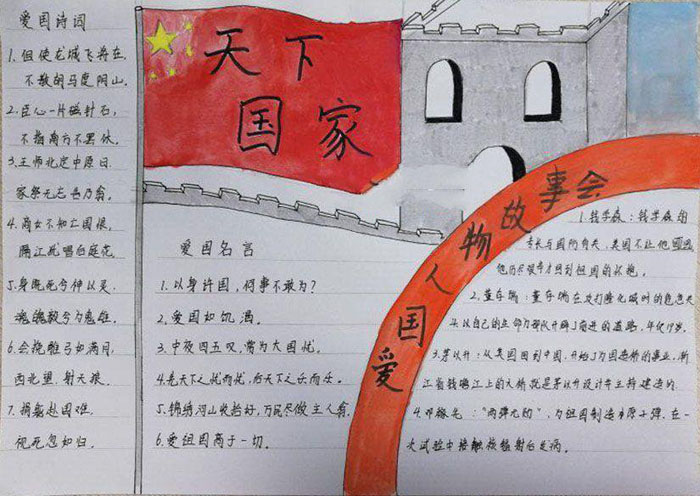 爱国诗词
1.但使龙城飞将在,
不教胡马度阴山。
2.臣心一片磁针石,
不指南方不罢休。
3.王师北定中原日,
家祭无忘告乃翁。
4.商女不知亡国恨,
隔江犹唱后庭花。
5.身既死兮神以灵,
魂魄毅兮为鬼雄。
6.会挽雕弓如满月,
西北望,射天狼。
7.捐躯赴国难,
视死忽如归。
天下
国家
爱国名言
1.以身许国,何事不敢为?
2.爱国如饥渴。
3.中夜四五叹,常为大国忧。
4.先天下之忧而忧,后天下之乐而乐。
5.锦绣河山收拾好,万民尽做主人翁。
6.爱祖国高于一切。
爱国人物故事会
1.钱学森:钱学森因
专长与国防有关,美国不让他
他历尽艰辛才回到祖国的怀抱。
2.董存瑞:董存瑞在攻打隆化城时的危急关
以自己的生命为部队开辟了前进的道路,年仅19岁。
3.茅以升:从美国回到中国,开始了为国造桥的事业,浙
江省钱塘江上的大桥就是茅以升设计并主持建造的
4.邓稼先:“两弹元勋”,为祖国制造原子弹,在一
次试验中接触核辐射后患病。